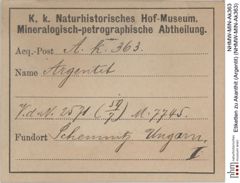 K. k. Naturhistorisches Hof-Museum.
Mineralogisch-petrographische Abtheilung.
Acq.-Post A. k. 363.
Name Argentit
V.d.N. 2571 (39/7) M. 7745.
Fundort Schemnitz Ungarn,
I
NHMW-MIN-Ak363
Etiketten zu Akanthit (Argentit) (NHMW-MIN-Ak363)
nhm